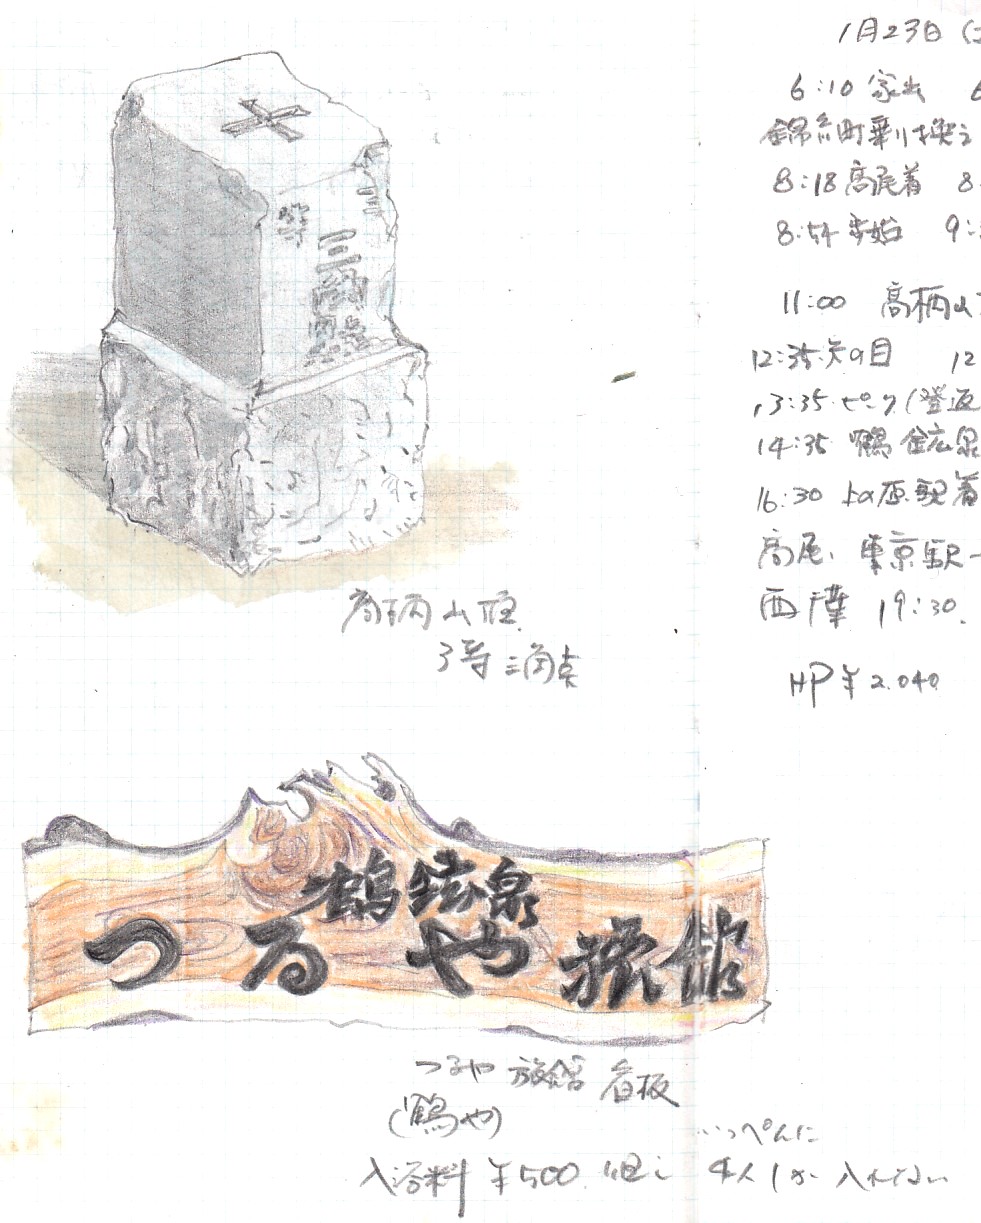 1月23日(土
6:10 家出 6
錦糸町乗り換え
8:18 高尾着 8
8:54 歩始 9:
11:00 高柄山
12:35 矢の目 12
13:35 ピーク(登返
14:35 鶴鉱泉
16:30 上の原駅着
高尾、東京駅
西千葉 19:30.
HP¥2.040
三等
三
高柄山頂
3等三角点
鶴鉱泉
つるや旅館
つるや旅館 看板
(鶴や)
入浴料 ¥500 但し いっぺんに 4人しか入れない